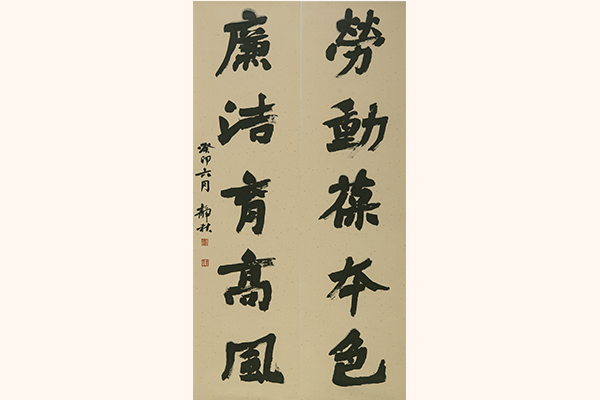 勞動葆本色
廉洁育高風
癸卯六月 靜秋